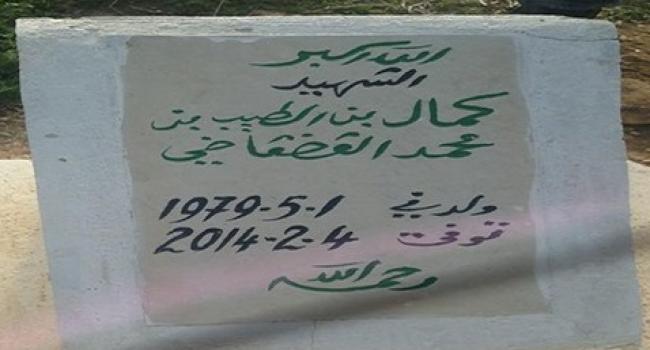 الله أكبر
الشهيد
كمال بن الطيب بن
محمد القضقاضي
ولد في 1979-5-1
توفي 2014-2-4
رحمه الله